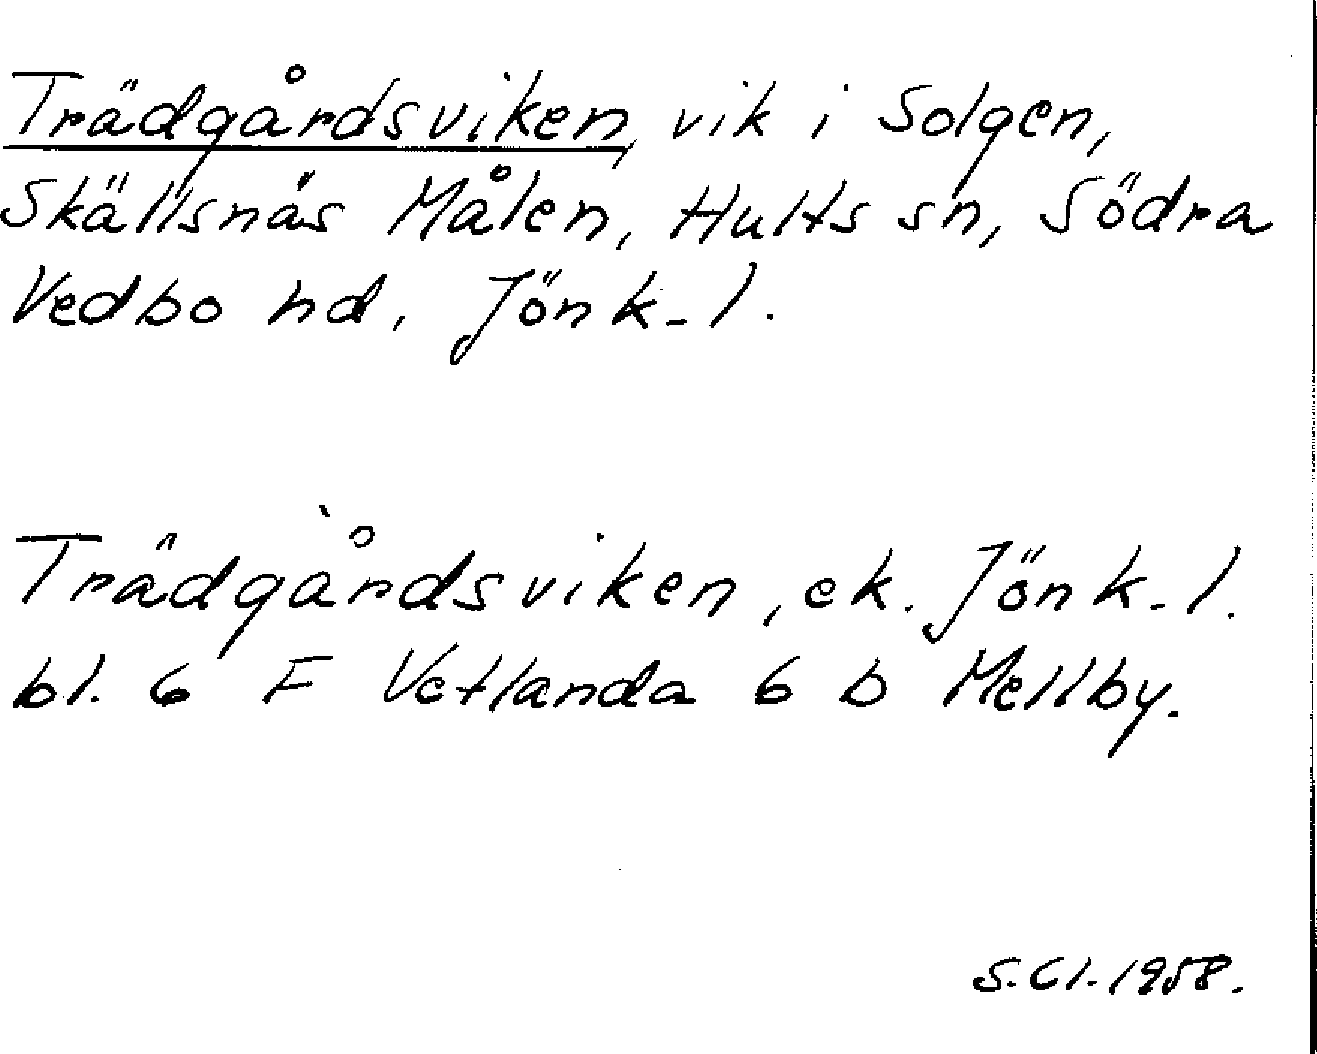 Trädgårdsviken, vik i Solgen,
Skällsnäs Målen, Hults sn, Södra
Vedbo hd. Jönk-l.
Trädgårdsviken, ek. Jönk-l.
bl. 6 F Vetlanda 6 b Mellby.
S.Cl.1958.